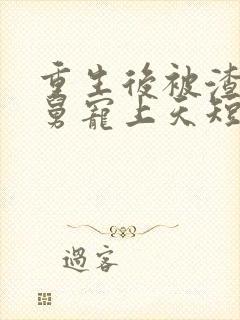 重生後被渣
舅寵上天短
過客